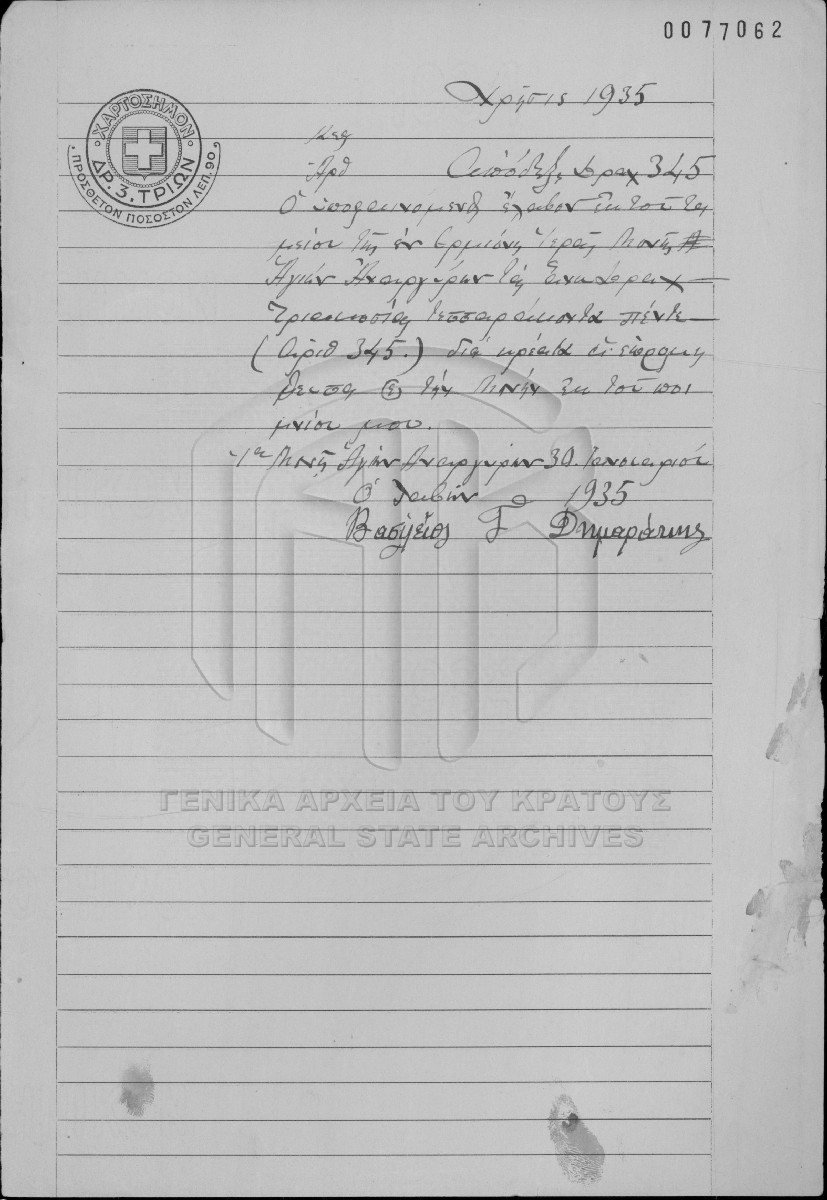 0077062
ΧΑΡΤΟΣΗΜΟΝ
ΔΡ. 3. ΤΡΙΩΝ
ΠΡΟΣΘΕΤΟΝ ΠΟΣΟΣΤΟΝ ΛΕΠ. 90
Χρῆσις 1935
Κεφ
Ἀρθ
Ἀπόδειξ. δραχ 345
Ὁ ὑποφαινόμενος ἔλαβον ἐκ τοῦ Τα
μείου τῆς ἐν Ἑρμιόνῃ Ἱερᾶς Μονῆς
Ἁγίων Ἀναργύρων τὰς ἄνω δραχ
Τριακοσίας τεσσαράκοντα πέντε
(Ἀριθ 345.) διὰ κρέατα
τὴν Μονήν ἐκ τοῦ ποι
μνίου μου.
Μονῆ Ἁγίων Ἀναργύρων 30 Ιανουαρίου
Ὁ λαβών 1935
Βασίλειος Γ Δημαράκης
ΓΕΝΙΚΑ ΑΡΧΕΙΑ ΤΟΥ ΚΡΑΤΟΥΣ
GENERAL STATE ARCHIVES